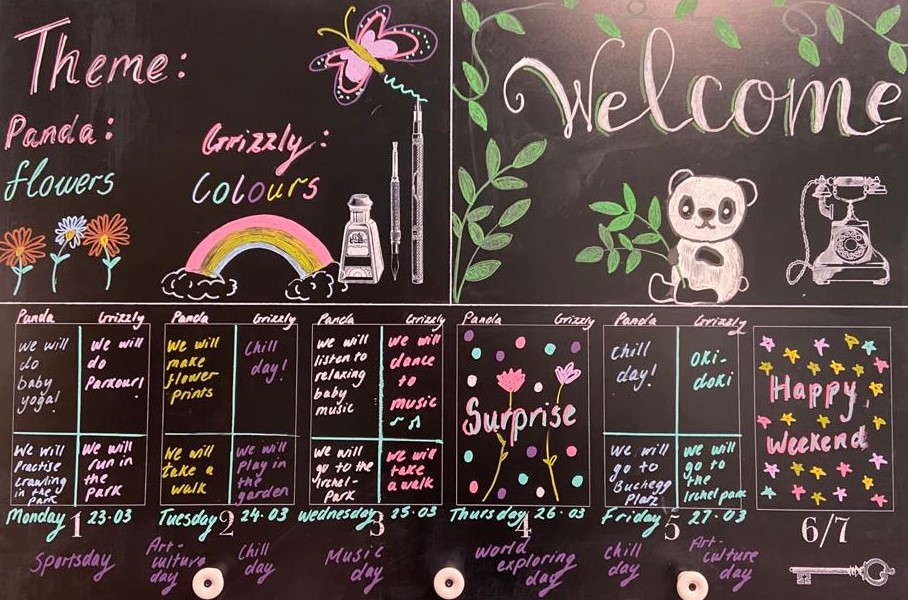 Theme:
Panda:
flowers
Grizzly:
Colours
Welcome
Panda Grizzly
we will
do
baby
yoga!
We will
do
Parkour!
We will
Practise
crawling
in the
park
We will
run in
the
park
Monday 1 23.03
Sportsday
Panda Grizzly
We will
make
flower
prints
Chill
day!
We will
take a
walk
We will
play in
the
garden
Tuesday 2 24.03
Art-
culture
day
Chill
day
Panda Grizzly
we will
listen to
relaxing
baby
music
We will
dance
to
music
We will
go to the
Irchel-
Park
we will
take
a walk
Wednesday 3 25.03
Music
day
Panda Grizzly
Surprise
Thursday 4 26.03
World
exploring
day
Panda Grizzly
Chill
day!
Oki-
doki
We will
go to
Buchegg
Platz
We will
go to
the
Irchel park
Friday 5 27.03
Chill
day
Art-
culture
day
Happy
Weekend
6/7